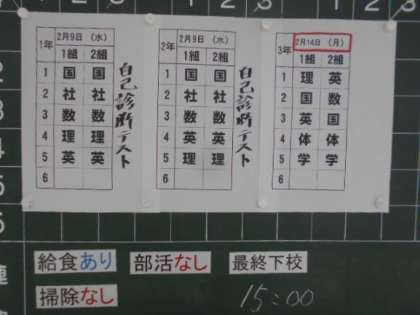 1年 2月9日 (水)
1組 2組
1 国 国
2 社 社
3 数 数
4 理 理
5 英 英
6
自己診断テスト
2年 2月9日 (水)
1組 2組
1 国 国
2 社 社
3 数 数
4 英 英
5 理 理
6
自己診断テスト
3年 2月14日 (月)
1組 2組
1 理 英
2 国 数
3 英 国
4 体 体
5 学 学
6
給食あり 部活なし 最終下校
掃除なし 15:00